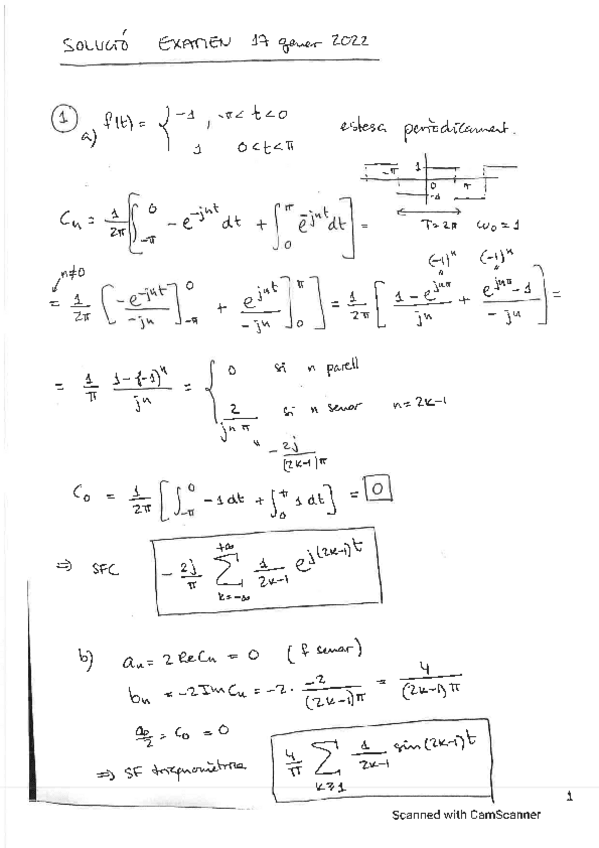 SOLUCIÓ EXAMEN 17 gener 2022
① a) f(t) = { -1 , -π < t < 0
1 0 < t < π
estesa periòdicament.
-π 1 0 π -1
T = 2π ω₀ = 1
Cₙ = 1/2π [ ∫_{-π}^{0} - e^{-jnt} dt + ∫_{0}^{π} e^{-jnt} dt ] =
n≠0
(-1)ⁿ (-1)ⁿ
= 1/2π [ [-e^{-jnt}/-jn]_{-π}^{0} + [e^{jnt}/-jn]_{0}^{π} ] = 1/2π [ (1 - e^{jnπ})/jn + (e^{jnπ} - 1)/-jn ] =
= 1/π (1-(-1)ⁿ)/jn = { 0 si n parell
2/jnπ si n senar n = 2k-1
" -2j/(2k-1)π
C₀ = 1/2π [ ∫_{-π}^{0} -1 dt + ∫_{0}^{π} 1 dt ] = 0
⇒ SFC -2j/π Σ_{k=-∞}^{+∞} 1/(2k-1) e^{j(2k-1)t}
b) aₙ = 2 Re Cₙ = 0 (f senar)
bₙ = -2 Im Cₙ = -2 · -2/(2k-1)π = 4/(2k-1)π
a₀/2 = C₀ = 0
⇒ SF trigonomètrica 4/π Σ_{k≥1} 1/(2k-1) sin(2k-1)t
1
Scanned with CamScanner